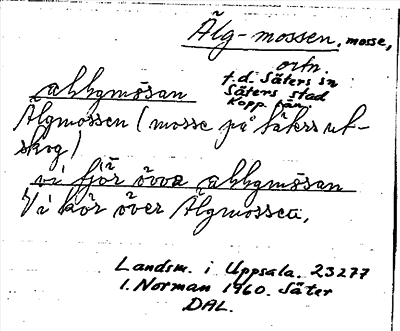 Älg-mossen, mosse,
ortn.
t.d. Säters sn
Säters stad
Kopp. län.
Älgmossen (mosse på Säters ut-
skog)
Vi kör över Älgmossen.
Landsm. i Uppsala. 23277
I. Norman 1960. Säter
DAL.